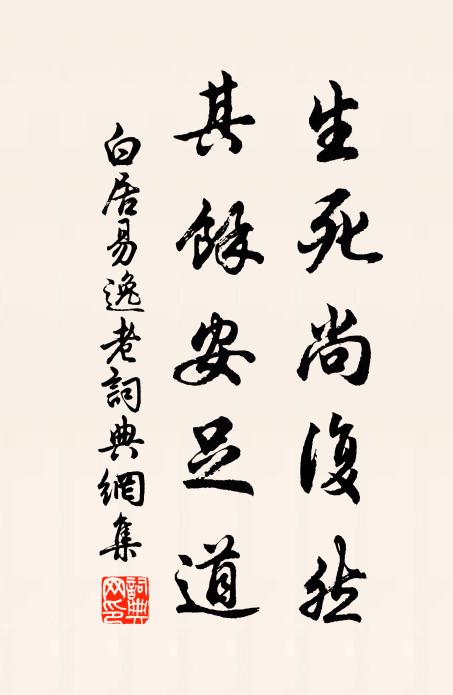 生死尚復然
其餘安足道
白居易逸老詞典網集
詞典網印